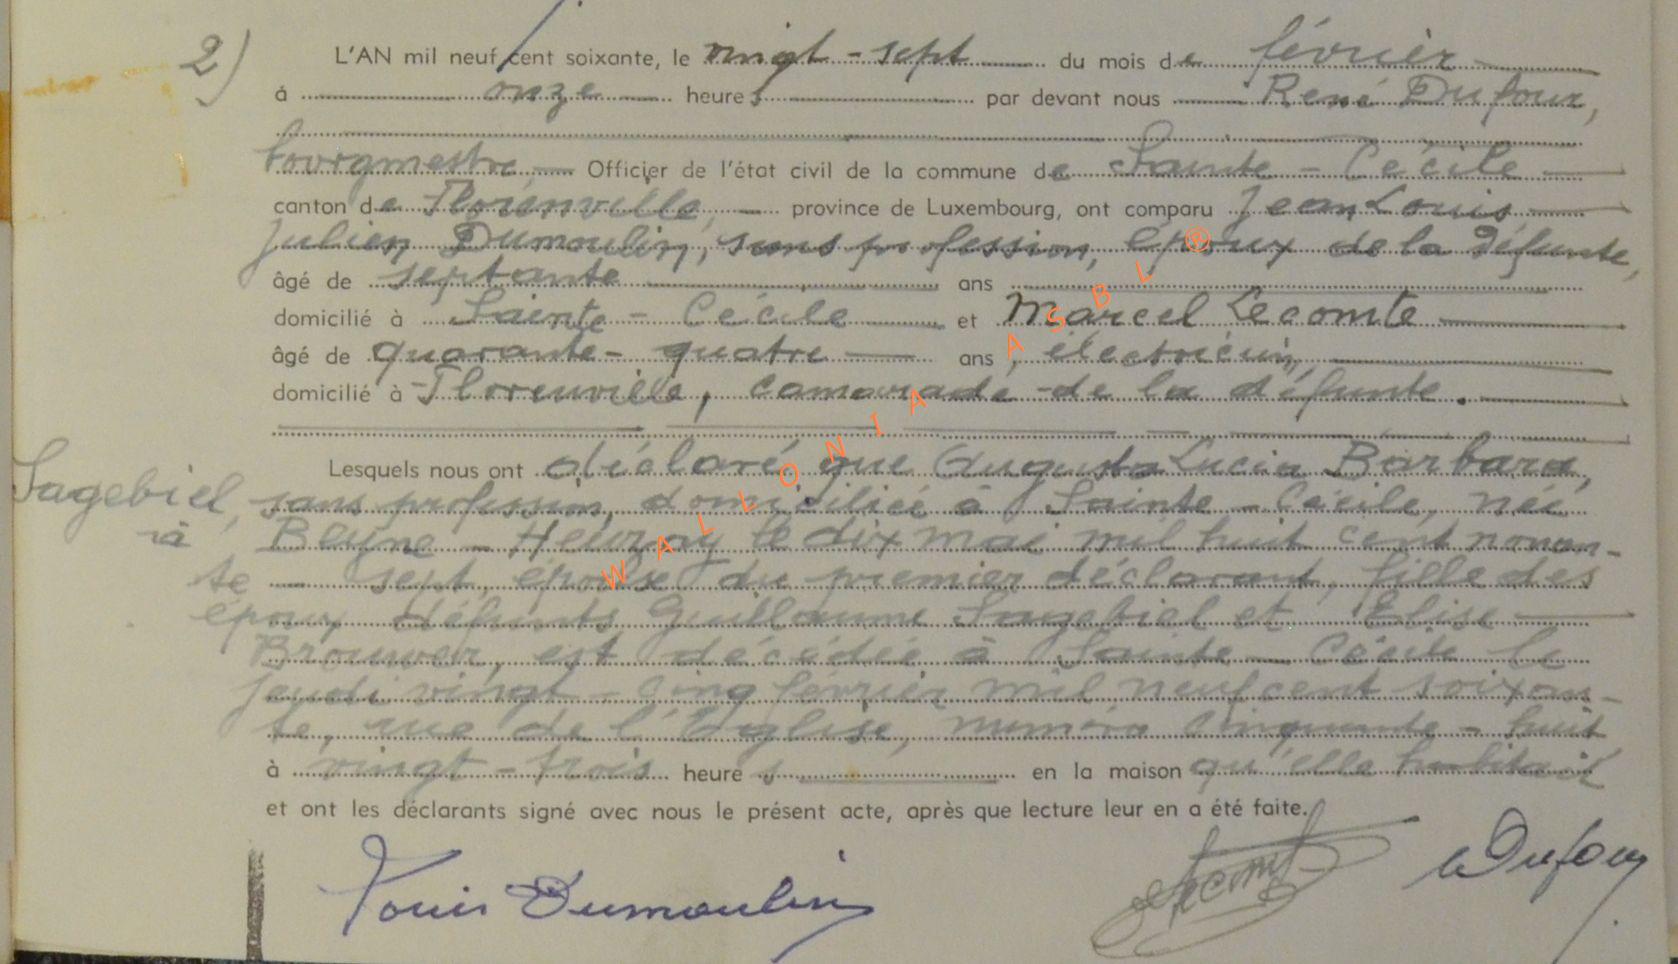 2) L'AN mil neuf cent soixante, le vingt-sept du mois de février
à onze heures par devant nous René Dufour,
bourgmestre Officier de l'état civil de la commune de Sainte-Cécile
canton de Florenville, province de Luxembourg, ont comparu Jean Louis
Julien Dumoulin, sans profession, époux de la défunte,
âgé de septante ans
domicilié à Sainte-Cécile et Marcel Lecomte
âgé de quarante-quatre ans, électricien,
domicilié à Florenville, camarade de la défunte.
Lesquels nous ont déclaré que Augusta Lucia Barbara,
Sagebiel, sans profession, domiciliée à Sainte-Cécile, née
à Beyne-Heuzay le dix mai mil huit cent nonan-
te-sept, épouse du premier déclarant, fille des
époux défunts Guillaume Sagebiel et Elise
Brouwer, est décédée à Sainte-Cécile le
jeudi vingt-cinq février mil neuf cent soixan-
te, rue de l'Eglise, numéro cinquante-huit
à vingt-trois heures en la maison qu'elle habitait
et ont les déclarants signé avec nous le présent acte, après que lecture leur en a été faite.
Louis Dumoulin Lecomte Dufour
WALLONIA ASBL ®